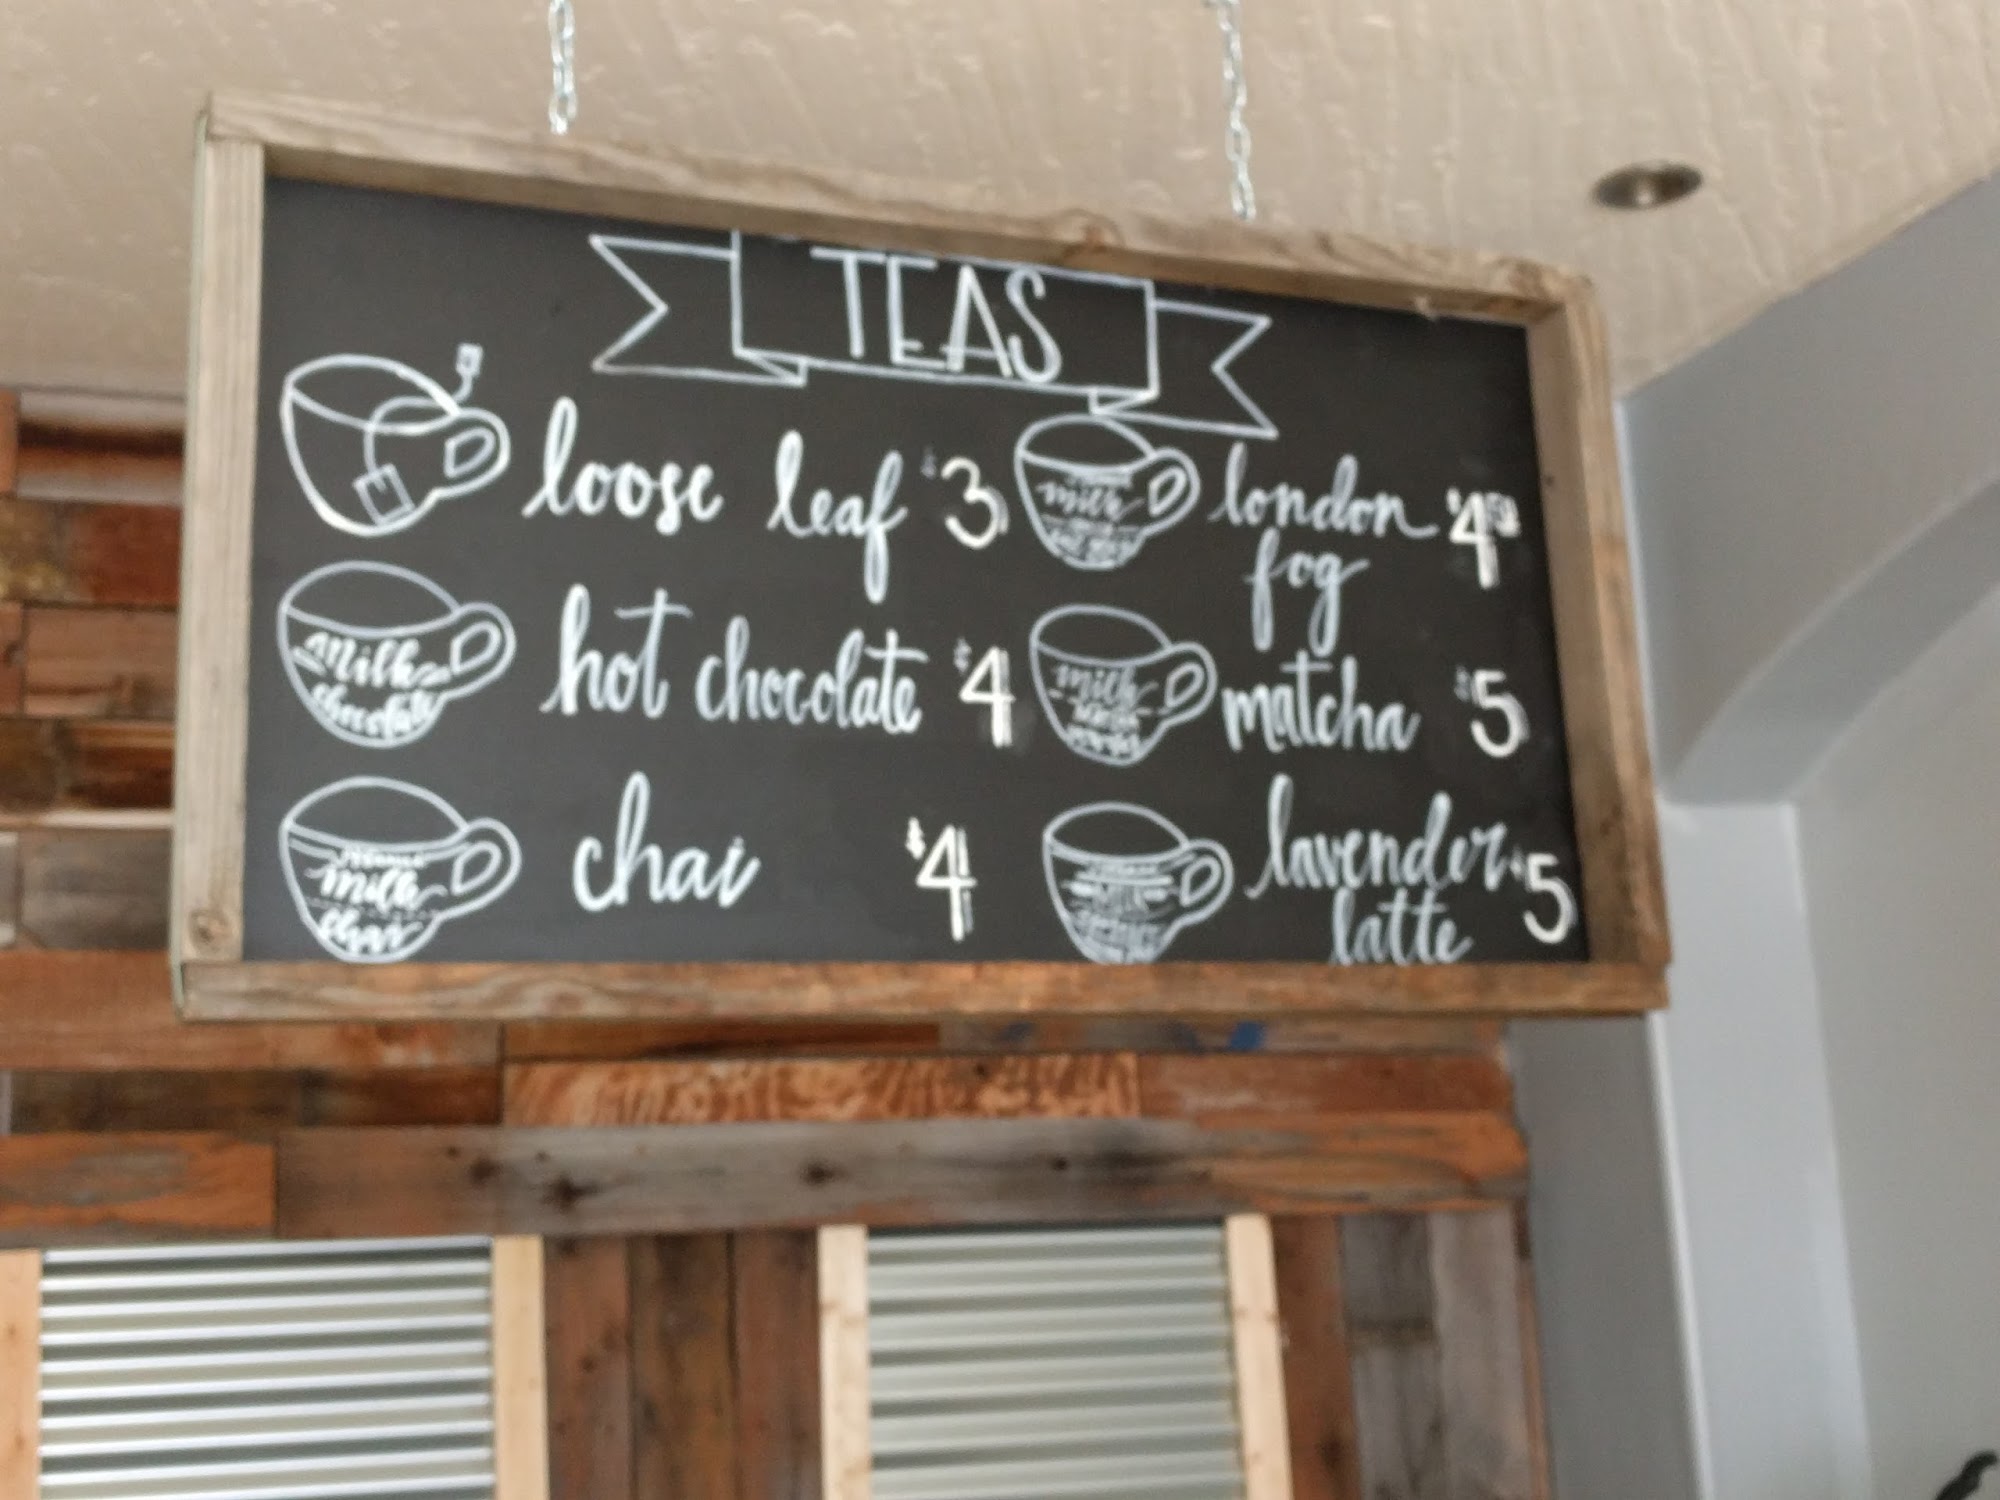 TEAS
loose leaf $3
milk
chocolate
hot chocolate $4
milk
chai
chai $4
milk
london $4.50
fog
milk
matcha $5
lavender $5
latte